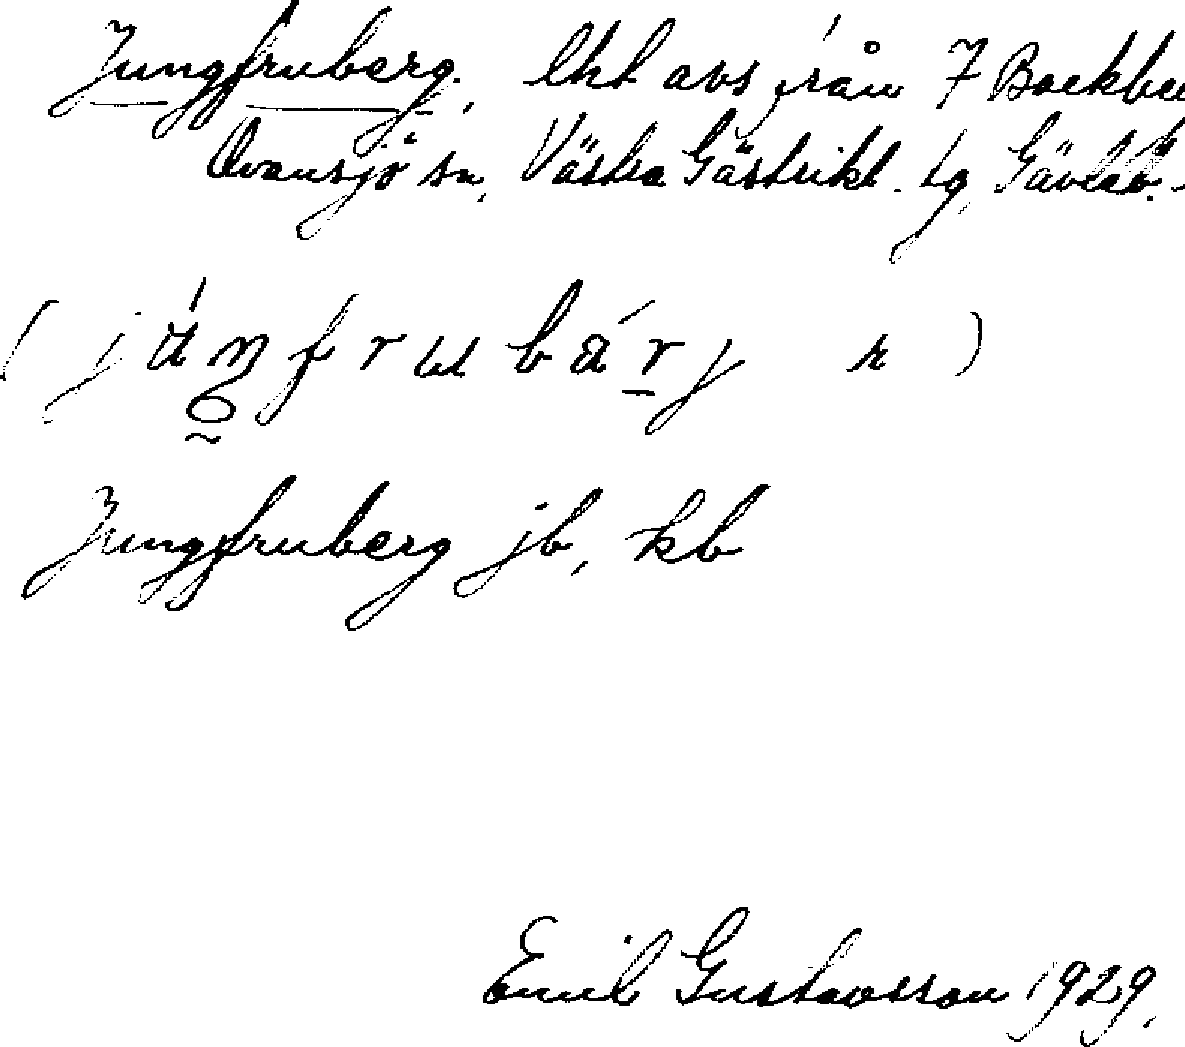 Jungfruberg, lht avs från 7 Backbe
Ovansjö sn, Västra Gästrikl. tg, Gävleb.
Jungfruberg jb, kb
Emil Gustavsson 1929.